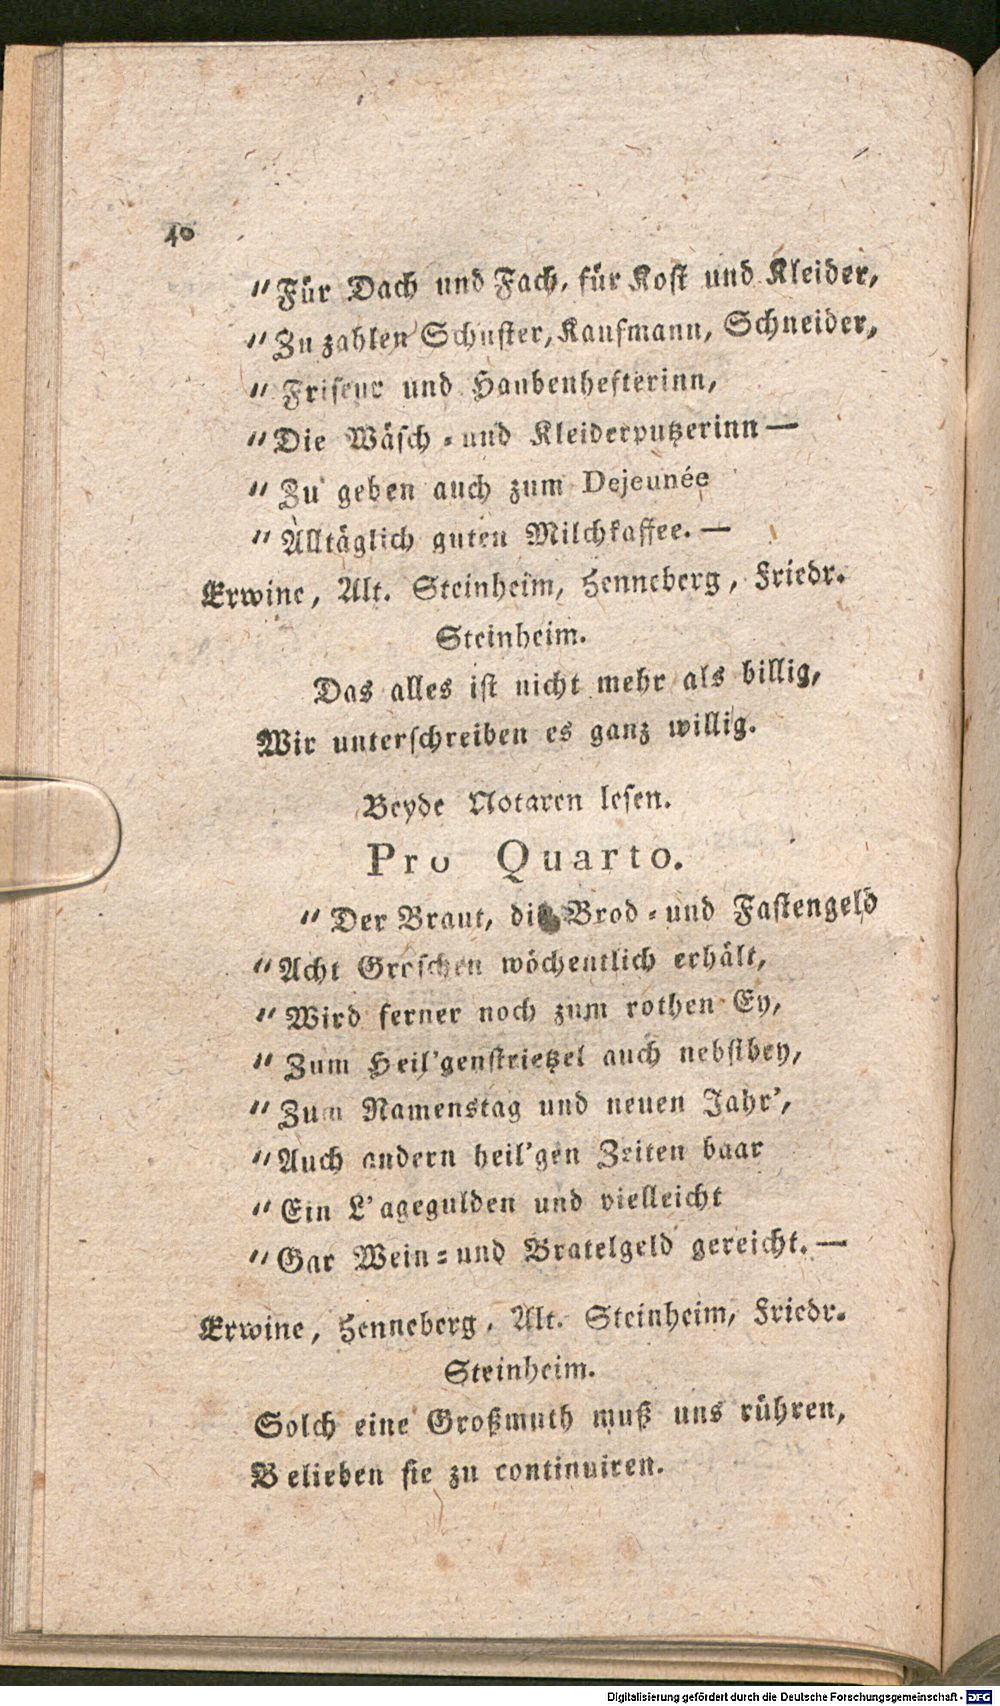 40
"Für Dach und Fach, für Kost und Kleider,
"Zu zahlen Schuster, Kaufmann, Schneider,
"Friseur und Haubenhefterinn,
"Die Wäsch-und Kleiderputzerinn—
"Zu geben auch zum Dejeunée
"Alltäglich guten Milchkaffee.—
Erwine, Alt. Steinheim, Henneberg, Friedr.
Steinheim.
Das alles ist nicht mehr als billig,
Wir unterschreiben es ganz willig.
Beyde Notaren lesen.
Pro Quarto.
"Der Braut, die Brod-und Fastengeld
"Acht Groschen wöchentlich erhält,
"Wird ferner noch zum rothen Ey,
"Zum Heil'genstrietzel auch nebstbey,
"Zum Namenstag und neuen Jahr',
"Auch andern heil'gen Zeiten baar
"Ein L'agegulden und vielleicht
"Gar Wein-und Bratelgeld gereicht.—
Erwine, Henneberg, Alt. Steinheim, Friedr.
Steinheim.
Solch eine Großmuth muß uns rühren,
Belieben sie zu continuiren.
Digitalisierung gefördert durch die Deutsche Forschungsgemeinschaft - DFG